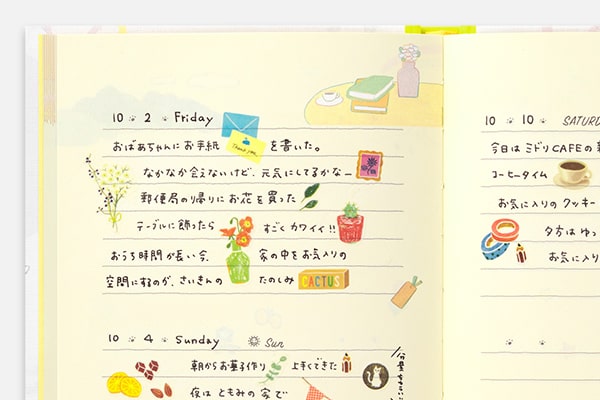 10 2 Friday
おばあちゃんにお手紙 Thank you を書いた。
なかなか会えないけど、元気にしてるかな〜
郵便局の帰りにお花を買った
テーブルに飾ったら すごくカワイイ!!
おうち時間が長い今、 家の中をお気入りの
空間にするのが、さいきんの たのしみ CACTUS
10 4 Sunday Sun
朝からお菓子作り 上手くできた
夜は ともみの家で
10 10 SATUR
今日はミドリCAFEの
コーヒータイム
お気に入りのクッキー
夕方はゆっ
お気に入り